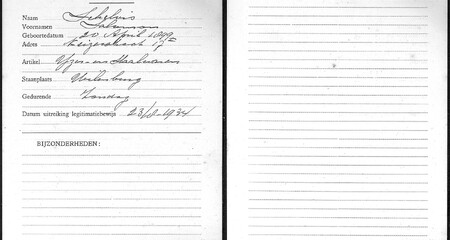 Naam Schelvis
Voornamen Salomon
Geboortedatum 20 April 1899
Adres 17
Artikel Yzer- en Staalwaren
Staanplaats Uilenburg
Gedurende Zondag
Datum uitreiking legitimatiebewijs 23/10-1934
BIJZONDERHEDEN: